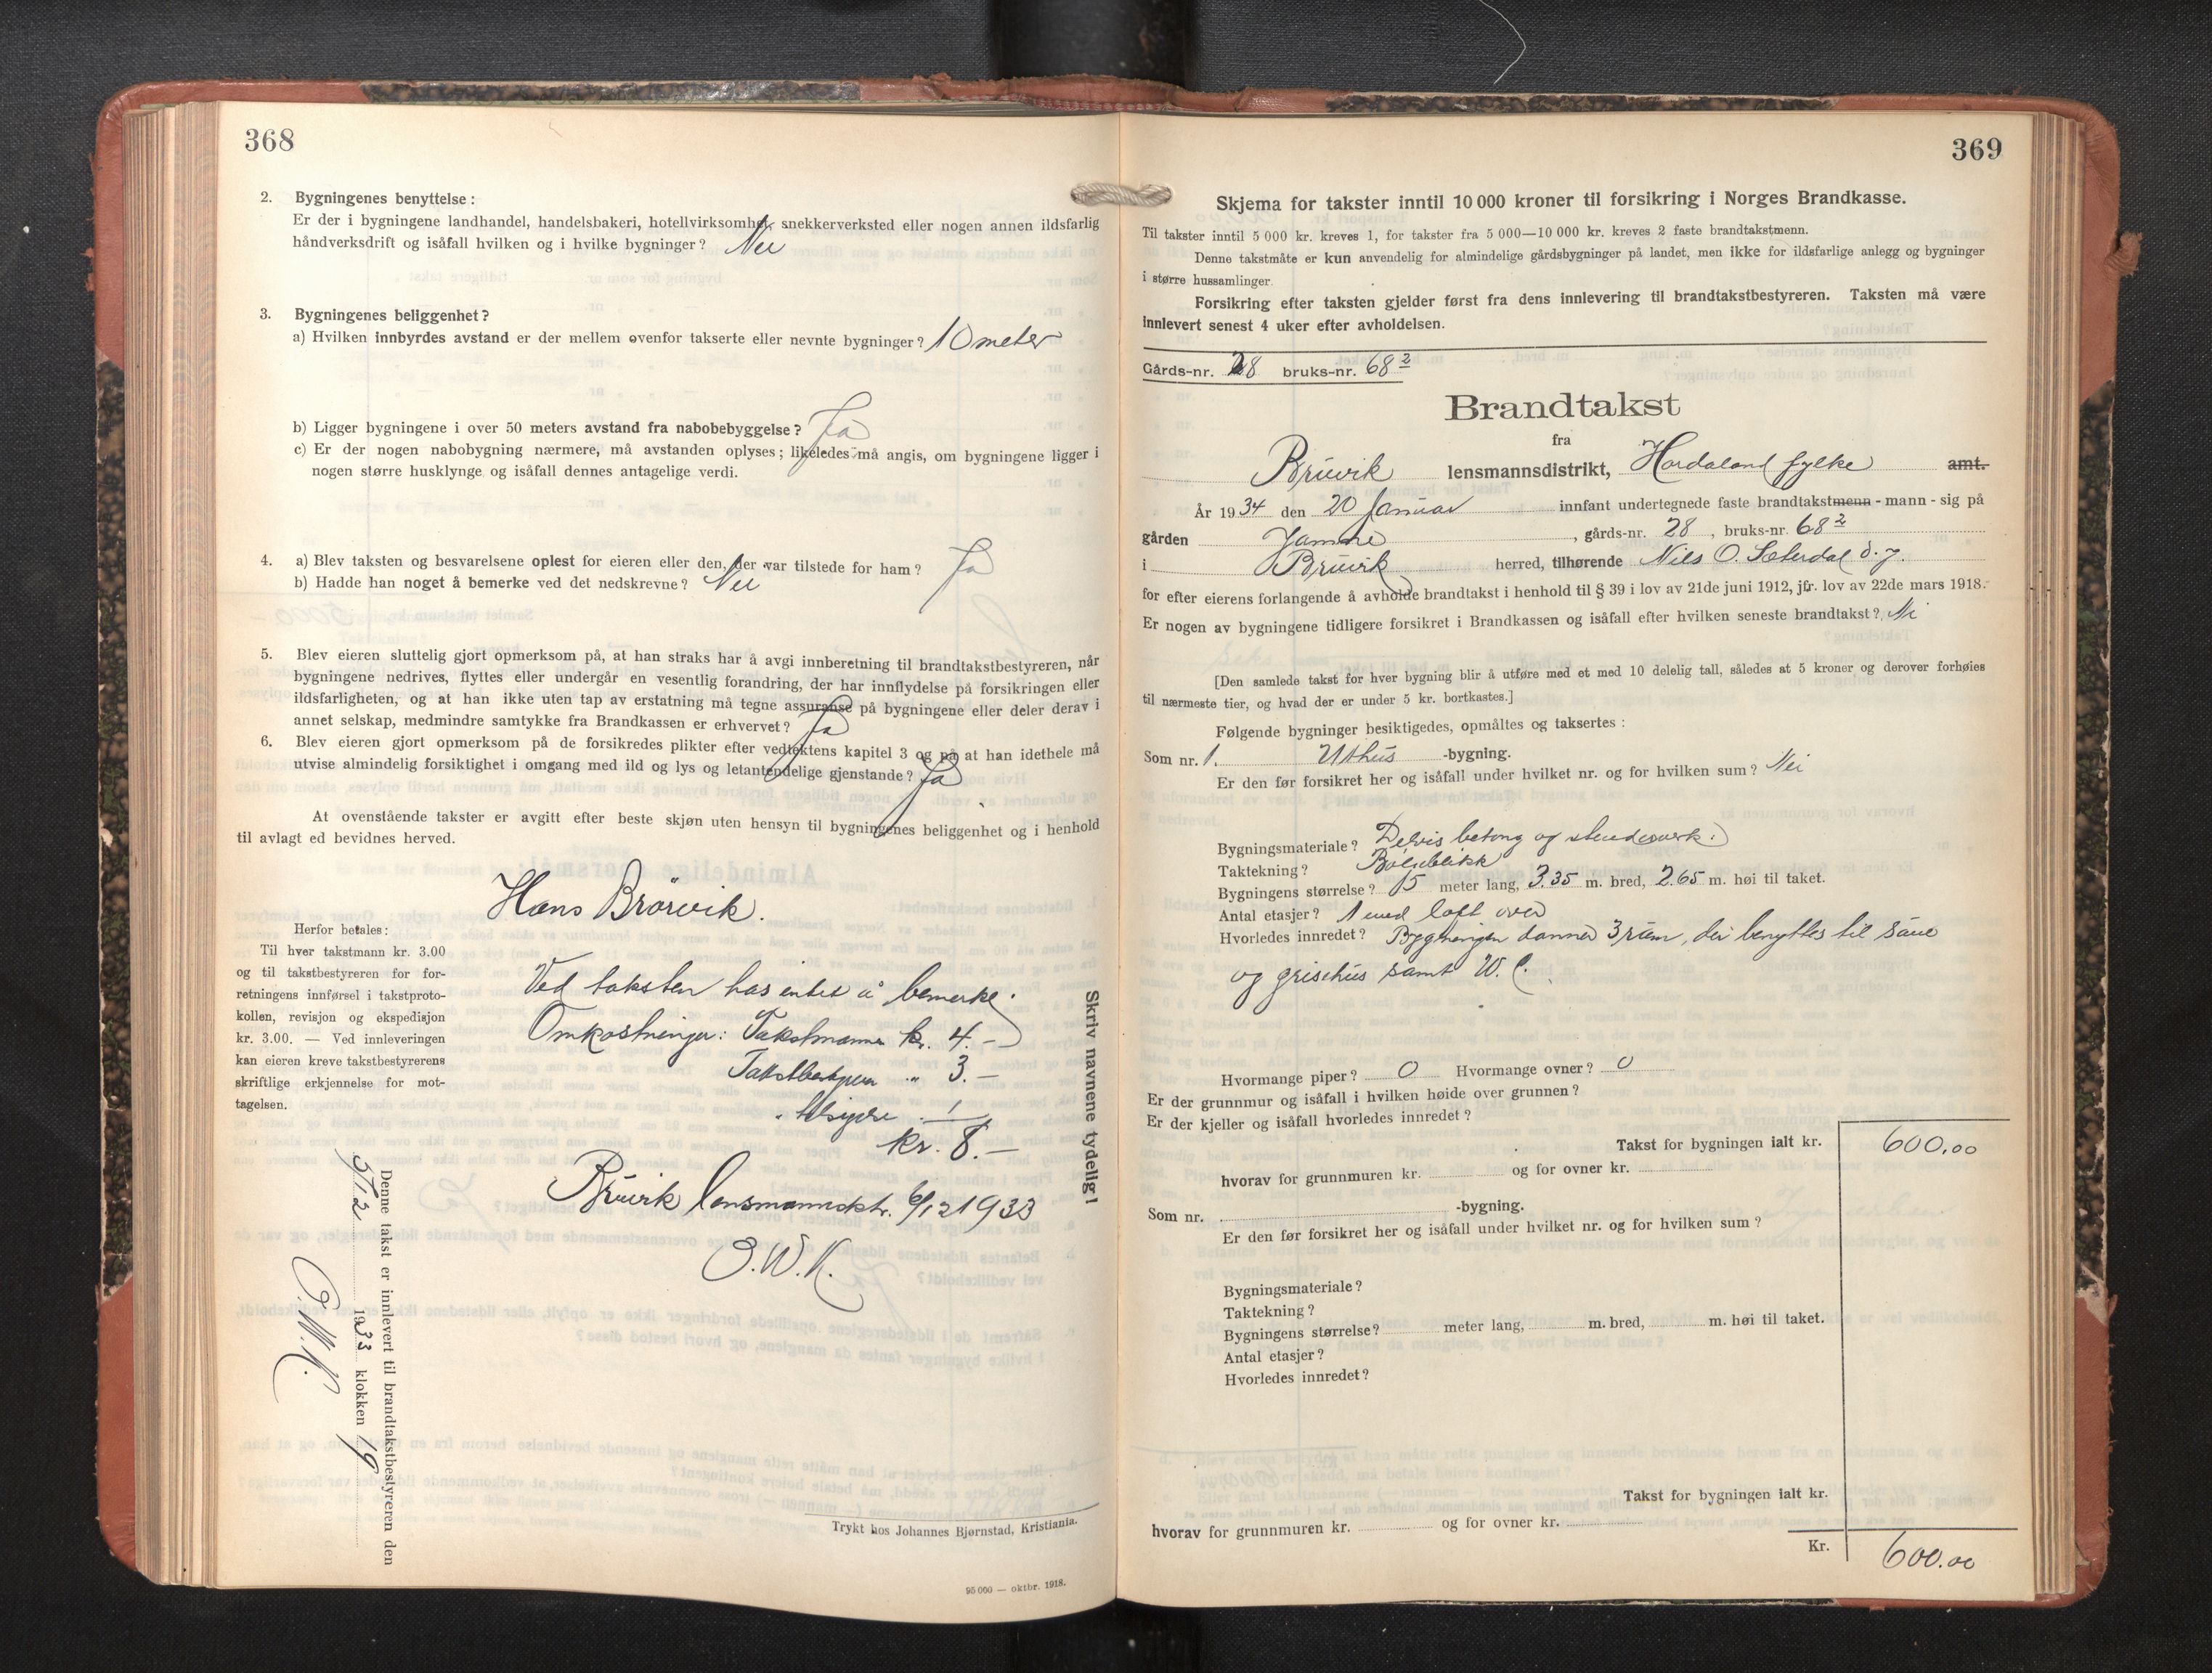 368
2. Bygningenes benyttelse :
Er der i bygningene landhandel, handelsbakeri, hotellvirksomhet, snekkerverksted eller nogen annen ildsfarlig
håndverksdrift og isåfall hvilken og i hvilke bygninger? Nei
3. Bygningenes beliggenhet?
a) Hvilken innbyrdes avstand er der mellem ovenfor takserte eller nevnte bygninger? 10 meter
b) Ligger bygningene i over 50 meters avstand fra nabobebyggelse? Ja
c) Er der nogen nabobygning nærmere, må avstanden oplyses; likeledes må angis, om bygningene ligger i
nogen større husklynge og isåfall dennes antagelige verdi.
4. a) Blev taksten og besvarelsene oplest for eieren eller den, der var tilstede for ham? Ja
b) Hadde han noget å bemerke ved det nedskrevne? Nei
5. Blev eieren sluttelig gjort opmerksom på, at han straks har å avgi innberetning til brandtakstbestyreren, når
bygningene nedrives, flyttes eller undergår en vesentlig forandring, der har innflydelse på forsikringen eller
ildsfarligheten, og at han ikke uten tap av erstatning må tegne assuranse på bygningene eller deler derav i
annet selskap, medmindre samtykke fra Brandkassen er erhvervet? Ja
6. Blev eieren gjort opmerksom på de forsikredes plikter efter vedtektens kapitel 3 og på at han idethele må
utvise almindelig forsiktighet i omgang med ild og lys og letantendelige gjenstande? Ja
At ovenstående takster er avgitt efter beste skjøn uten hensyn til bygningenes beliggenhet og i henhold
til avlagt ed bevidnes herved.
Hans Brørvik.
Herfor betales:
Til hver takstmann kr. 3.00
og til takstbestyreren for for-
retningens innførsel i takstproto-
kollen, revisjon og ekspedisjon
kr. 3.00. — Ved innleveringen
kan eieren kreve takstbestyrerens
skriftlige erkjennelse for mot-
tagelsen.
Ved taksten has intet å bemerke.
Omkostninger: Takstmannen kr. 4.-
Takstbestyreren " 3.-
kr. 8.-
Bruvik lensmannsktr. 6/12 1933
O.W.K.
Skriv navnene tydelig!
Denne takst er innlevert til brandtakstbestyreren den
5/12 1933 klokken 19
O.W.K.
Trykt hos Johannes Bjørnstad, Kristiania.
95 000 — oktbr. 1918.
369
Skjema for takster inntil 10 000 kroner til forsikring i Norges Brandkasse.
Til takster inntil 5 000 kr. kreves 1, for takster fra 5 000—10 000 kr. kreves 2 faste brandtakstmenn.
Denne takstmåte er kun anvendelig for almindelige gårdsbygninger på landet, men ikke for ildsfarlige anlegg og bygninger
i større hussamlinger.
Forsikring efter taksten gjelder først fra dens innlevering til brandtakstbestyreren. Taksten må være
innlevert senest 4 uker efter avholdelsen.
Gårds-nr. 28 bruks-nr. 68²
Brandtakst
fra
Bruvik lensmannsdistrikt, Hordaland fylke amt.
År 1934 den 20 Januar innfant undertegnede faste brandtakstmenn - mann - sig på
gården Jamne, gårds-nr. 28, bruks-nr. 68²
i Bruvik herred, tilhørende Nils O. Sæterdal d.y.
for efter eierens forlangende å avholde brandtakst i henhold til § 39 i lov av 21de juni 1912, jfr. lov av 22de mars 1918.
Er nogen av bygningene tidligere forsikret i Brandkassen og isåfall efter hvilken seneste brandtakst? Nei
[Den samlede takst for hver bygning blir å utføre med et med 10 delelig tall, således at 5 kroner og derover forhøies
til nærmeste tier, og hvad der er under 5 kr. bortkastes.]
Følgende bygninger besiktigedes, opmåltes og taksertes :
Som nr. 1. Uthus -bygning.
Er den før forsikret her og isåfall under hvilket nr. og for hvilken sum? Nei
Bygningsmateriale? Delvis betong og stenderverk.
Taktekning? Bølgeblikk
Bygningens størrelse? 15 meter lang, 3.35 m. bred, 2.65 m. høi til taket.
Antal etasjer? 1 med loft over
Hvorledes innredet? Bygningen danner 3 rum, der benyttes til saue
og grisehus samt W.C.
Hvormange piper? 0 Hvormange ovner? 0
Er der grunnmur og isåfall i hvilken høide over grunnen?
Er der kjeller og isåfall hvorledes innredet?
Takst for bygningen ialt kr. 600.00
hvorav for grunnmuren kr. og for ovner kr.
Som nr. -bygning.
Er den før forsikret her og isåfall under hvilket nr. og for hvilken sum?
Bygningsmateriale?
Taktekning?
Bygningens størrelse? meter lang, m. bred, m. høi til taket.
Antal etasjer?
Hvorledes innredet?
Takst for bygningen ialt kr.
hvorav for grunnmuren kr. og for ovner kr.
Kr. 600.00